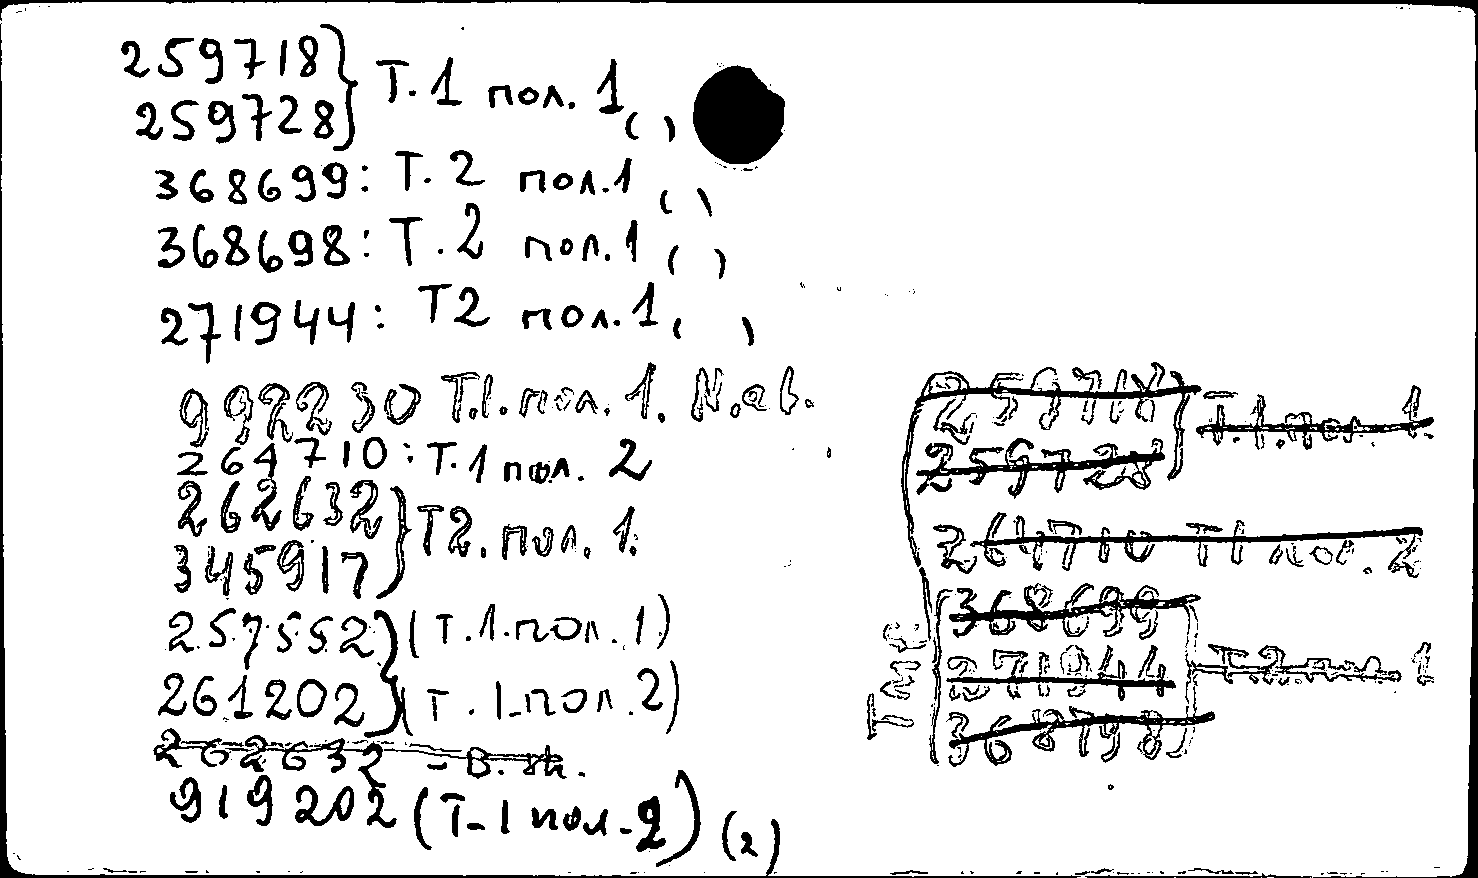 259718 } Т.1 пол. 1
259728 } ( )
368699: Т.2 пол.1 ( )
368698: Т.2 пол.1 ( )
271944: Т2 пол.1, ( )
992230 Т.1.пол. 1. N.ab.
264710: Т.1 пол. 2
262632 } Т2. пол. 1.
345917 }
257552 } (Т.1.пол.1)
261202 } (Т.1-пол.2)
262632 -
919202 (Т-1 пол-2) (2)
259718 } Т.1.пол. 1.
259728 }
264710 Т1 пол. 2
368699
271944 Т.2.пол. 1
368798